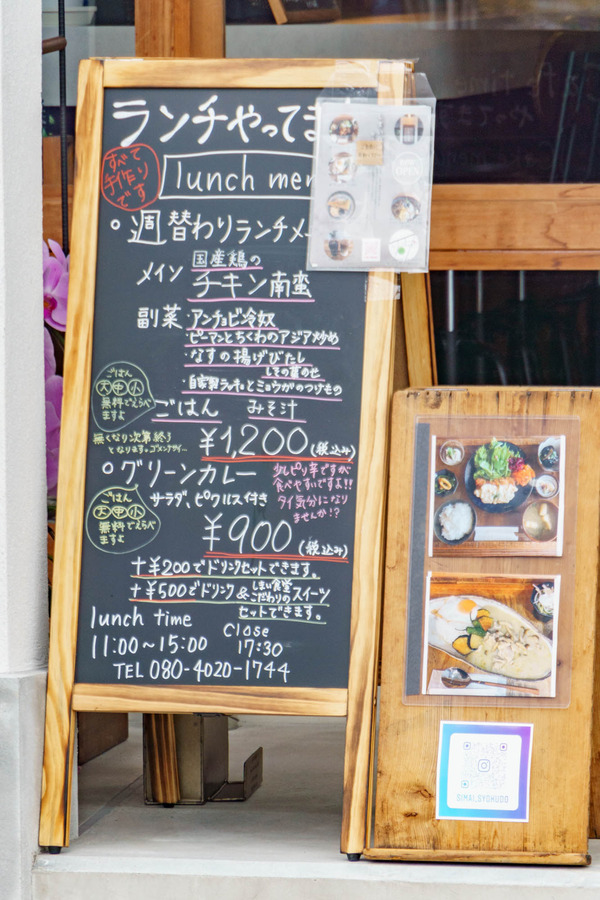 ランチやってま
すべて
手作り
です
lunch men
。週替わりランチメー
メイン 国産鶏の
チキン南蛮
副菜・アンチョビ冷奴
・ピーマンとちくわのアジア炒め
・なすの揚げびたし
しその葉のせ
・自家製ラッキョとミョウガのつけもの
ごはん
大中小
無料でえらべ
ますよ
ごはん みそ汁
無くなり次第終了
となります。ゴメンナサイ〜
¥1,200(税込み)
。グリーンカレー
サラダ、ピクルス付き
少しピリ辛ですが
食べやすいですよ!!
タイ気分になり
ませんか!?
ごはん
大中小
無料でえらべ
ますよ
¥900(税込み)
+¥200でドリンクセットできます。
+¥500でドリンク&しまい食堂こだわりのスイーツ
セットできます。
lunch time
11:00〜15:00
Close
17:30
TEL 080-4020-1744
SIMAI_SYOKUDO